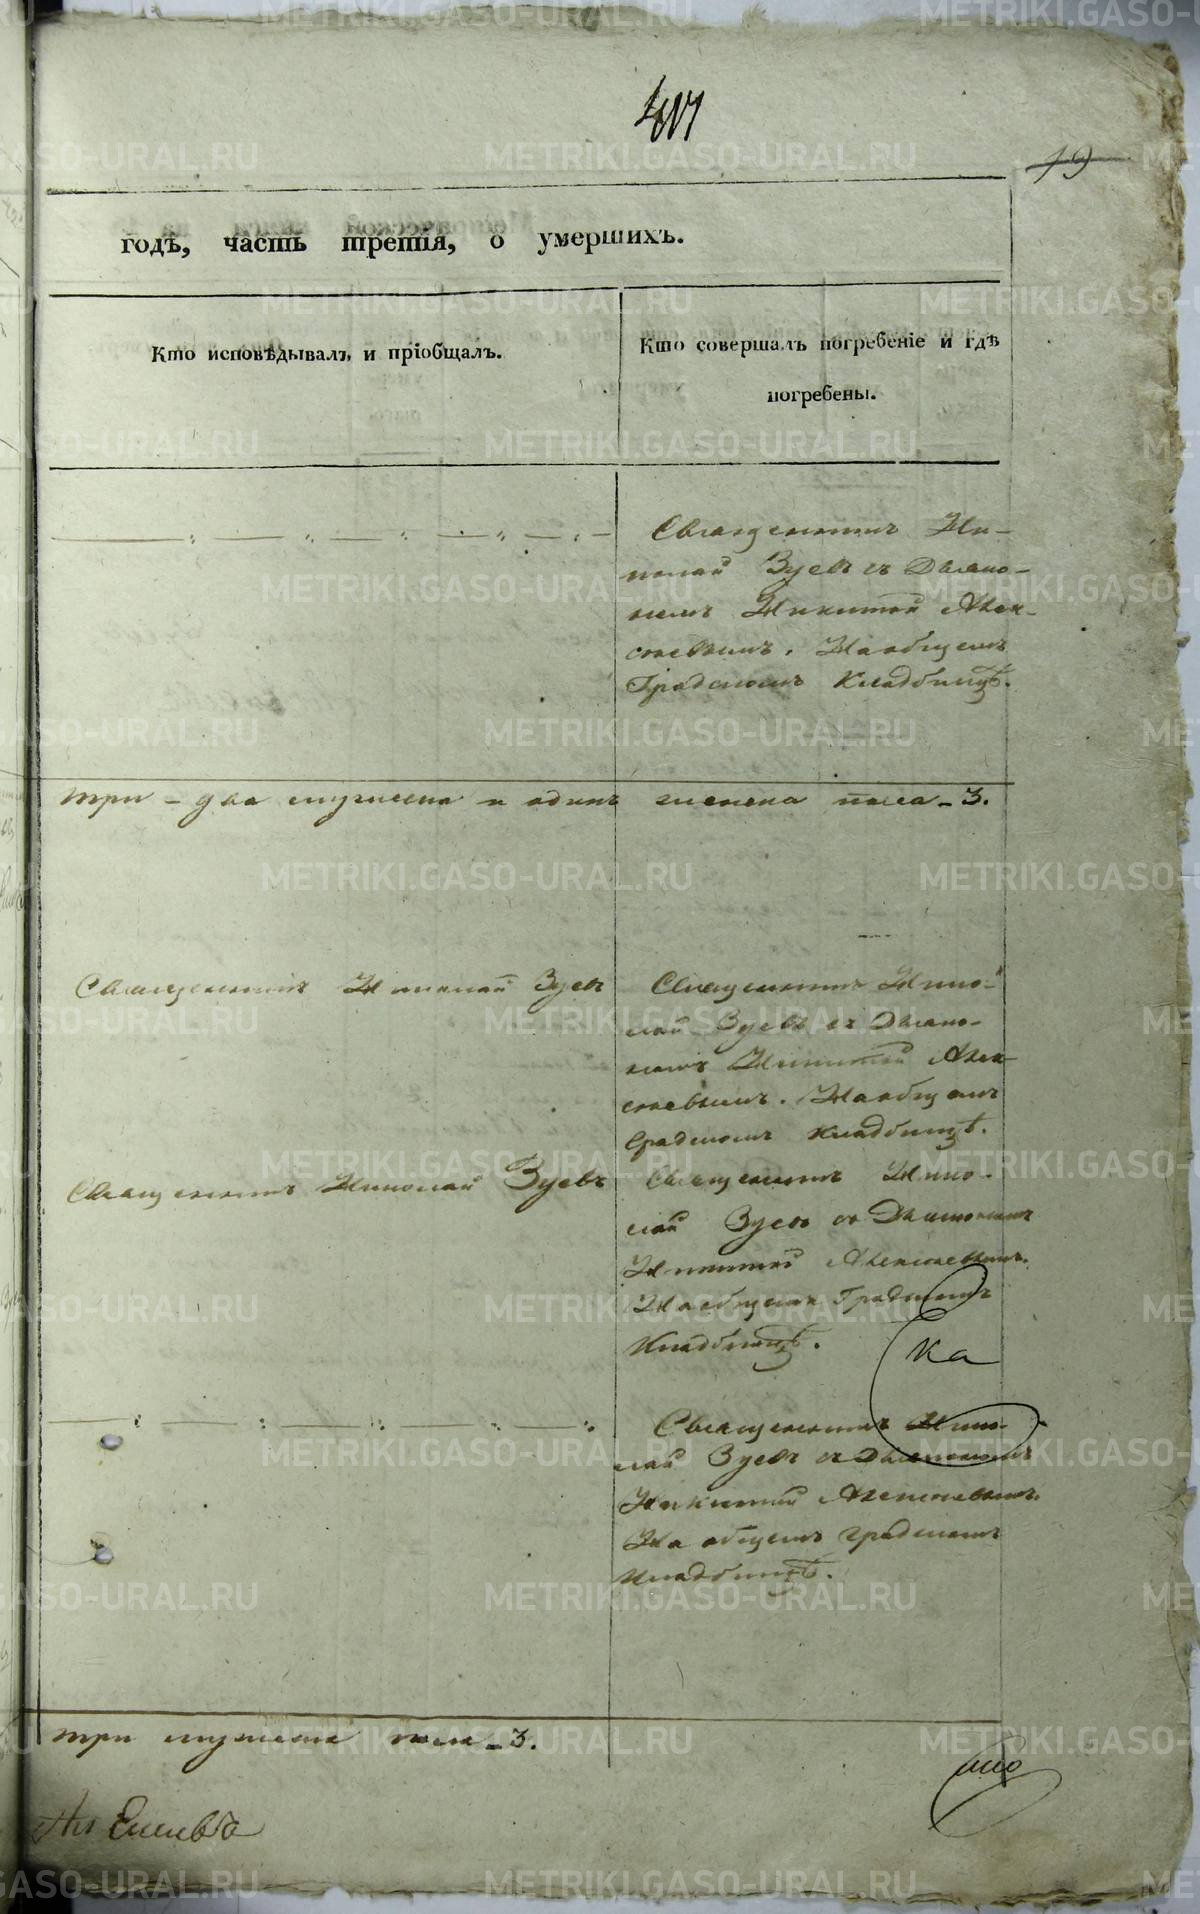 417
19
годъ, часть третія, о умершихъ.
Кто исповѣдывалъ и пріобщалъ.
Кто совершалъ погребеніе и гдѣ
погребены.
Священникъ Ни-
колай Зуевъ съ Дьяко-
номъ Никитой Алек-
сѣевымъ. На общемъ
Градскомъ Кладбищѣ.
три - два мужеска и одинъ женска пола - 3.
Священникъ Николай Зуевъ
Священникъ Нико-
лай Зуевъ съ Дьяко-
номъ Никитой Алек-
сѣевымъ. На общемъ
Градскомъ кладбищѣ.
Священникъ Николай Зуевъ
Священникъ Нико-
лай Зуевъ съ Дьякономъ
Никитой Алексѣевымъ.
На общемъ Градскомъ
Кладбищѣ.
ка
Священникъ Нико-
лай Зуевъ съ Дьякономъ
Никитой Алексѣевымъ.
На общемъ градскомъ
кладбищѣ.
три мужеска пола - 3.
METRIKI.GASO-URAL.RU